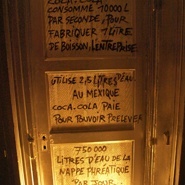 COCA. COLA
CONSOMME 10000 L
PAR SECONDE, POUR
FABRIQUER 1 LITRE
DE BOISSON, L'ENTREPRISE
UTILISE 2,5 LITRES D'EAU.
AU MEXIQUE
COCA. COLA PAIE
POUR POUVOIR PRELEVER
750 000
LITRES D'EAU DE LA
NAPPE PHREATIQUE
PAR JOUR.